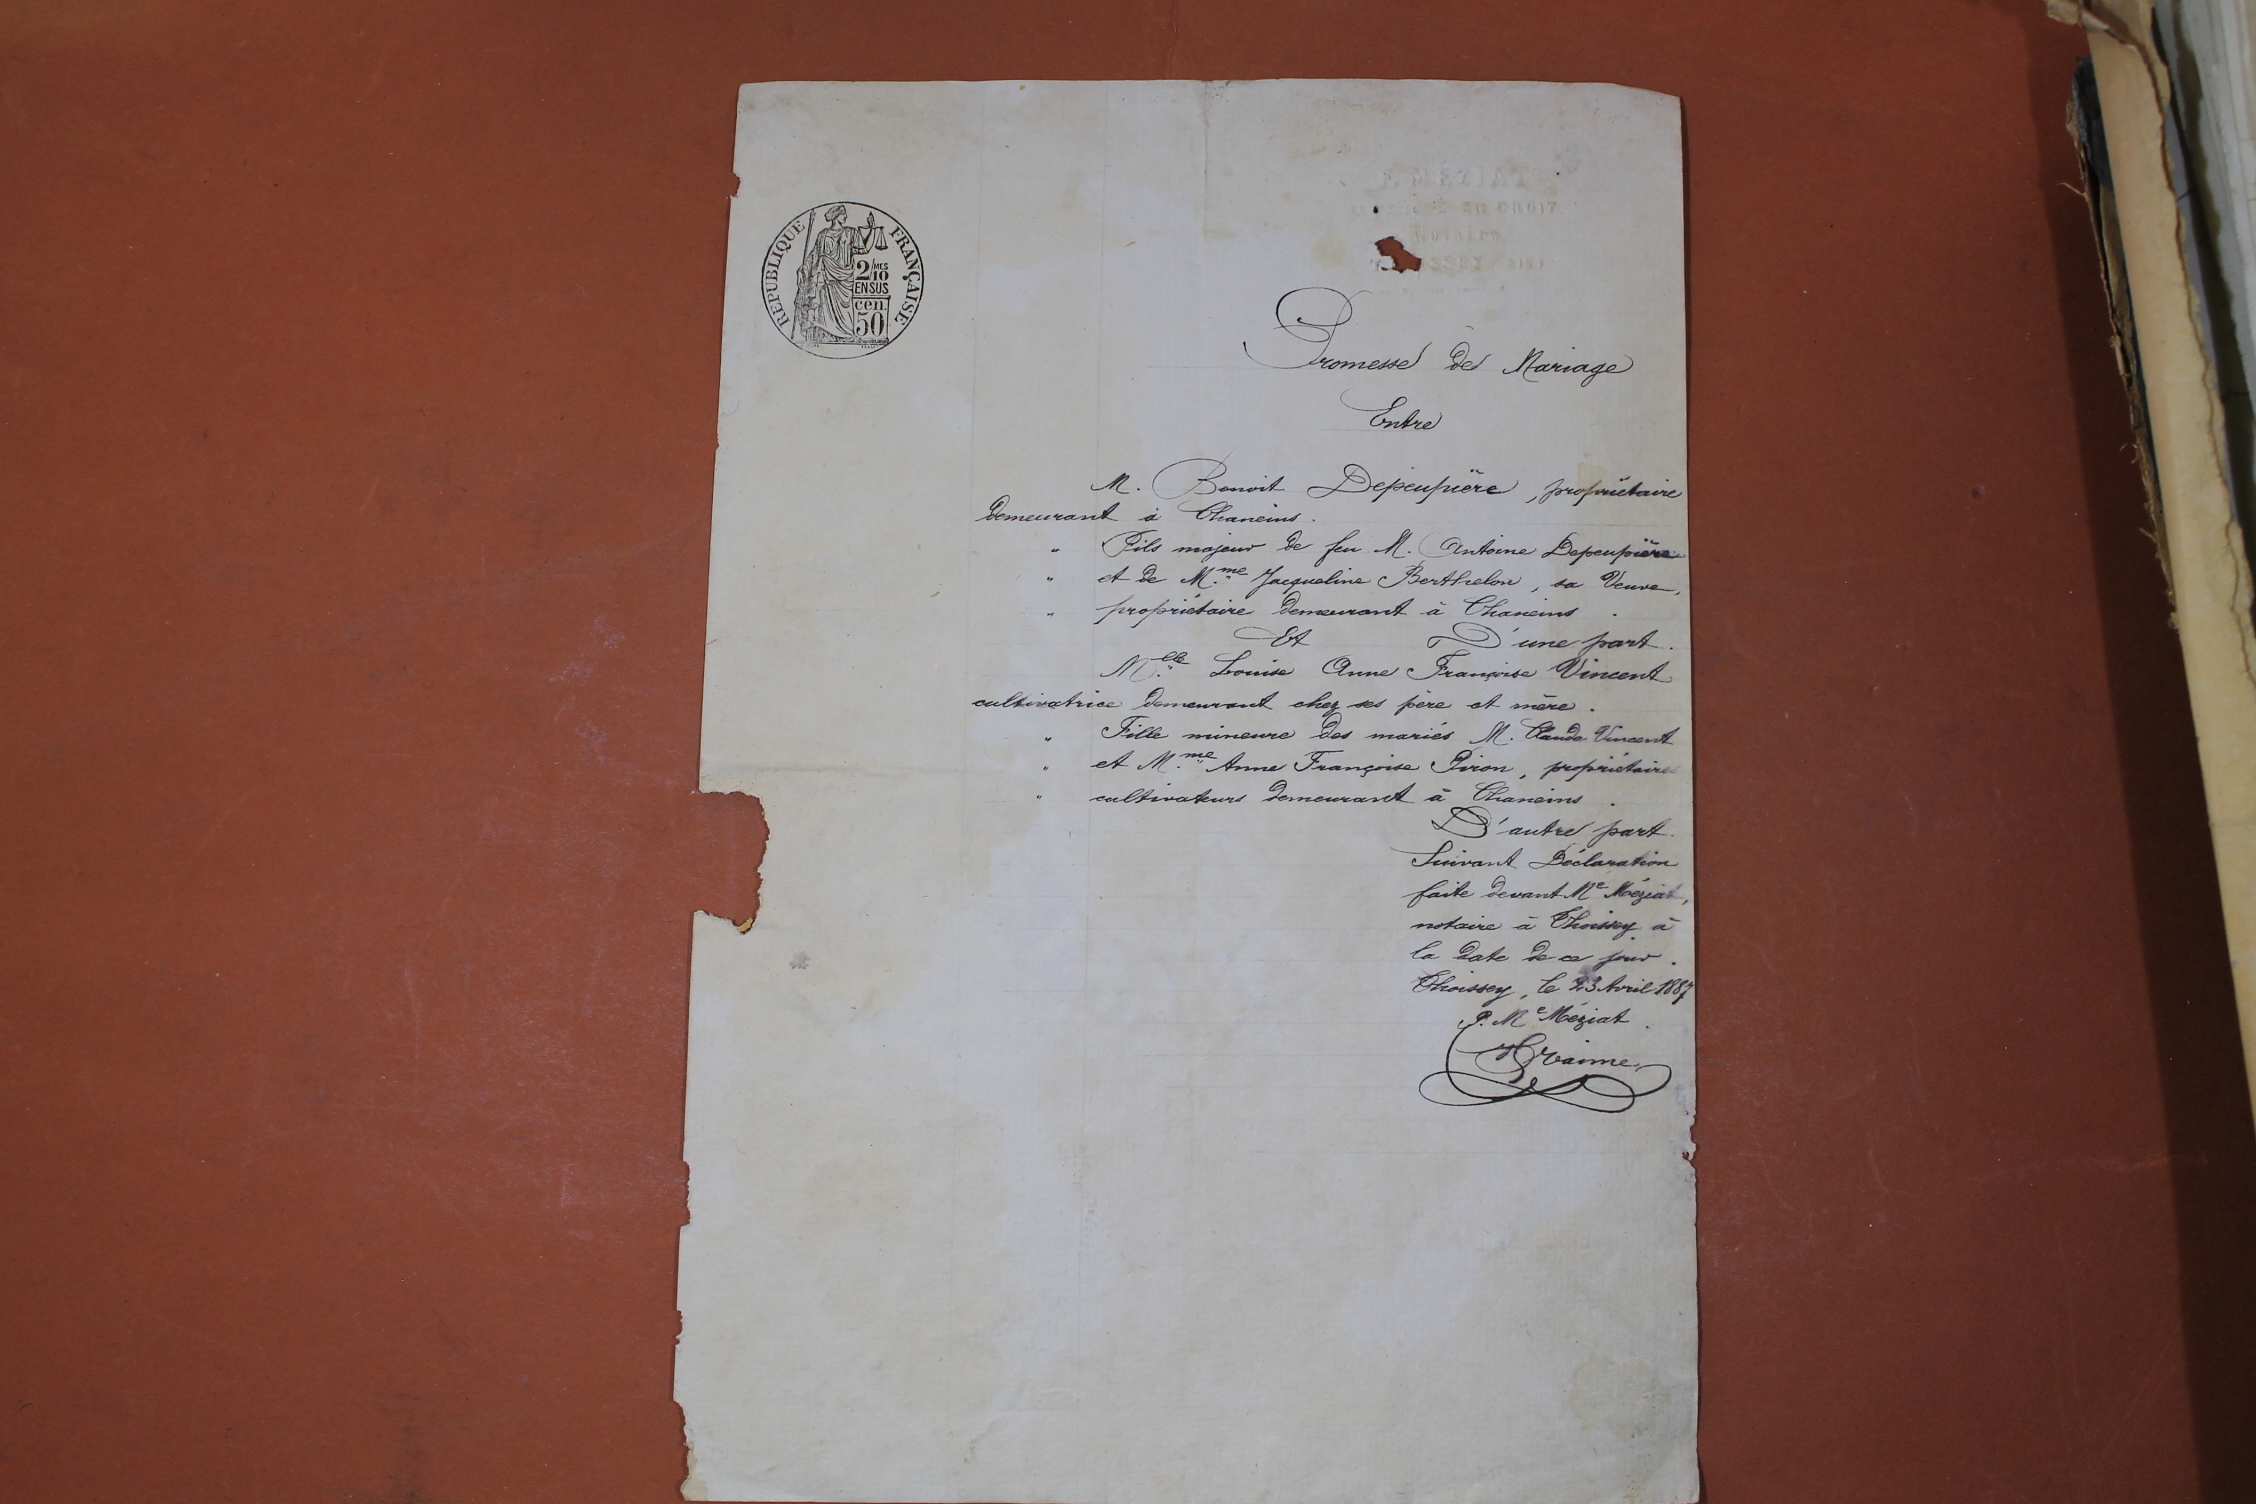 RÉPUBLIQUE FRANÇAISE
2/10 MES
EN SUS
cen.
50
MÉZIAT
EN DROIT
Notaire
Promesse de Mariage
Entre
M. Benoit Depeupière, propriétaire
demeurant à Chaneins.
" Fils majeur de feu M. Antoine Depeupière
" et de M.me Jacqueline Berthelon, sa Veuve,
" propriétaire demeurant à Chaneins.
Et D'une part.
M.elle Louise Anne Françoise Vincent
cultivatrice demeurant chez ses père et mère.
" Fille mineure des mariés M. Claude Vincent
" et M.me Anne Françoise Piron, propriétaires
" cultivateurs demeurant à Chaneins.
D'autre part.
Suivant Déclaration
faite devant Me Méziat,
notaire à Thoissey à
la date de ce jour.
Thoissey, le 23 Avril 1887
P. Me Méziat.